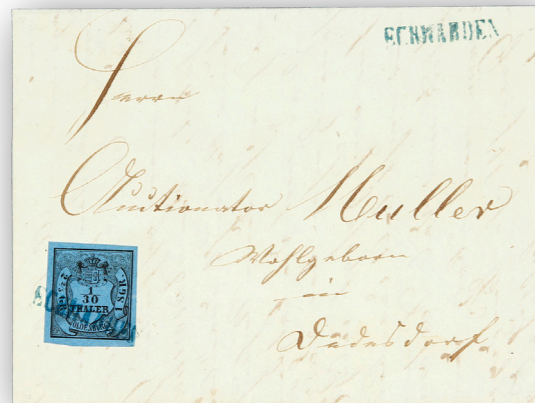 ECKWARDEN
Herrn
Auctionator Müller
Wohlgeborn
in
Dedesdorf
1
30
THALER
OLDENBURG